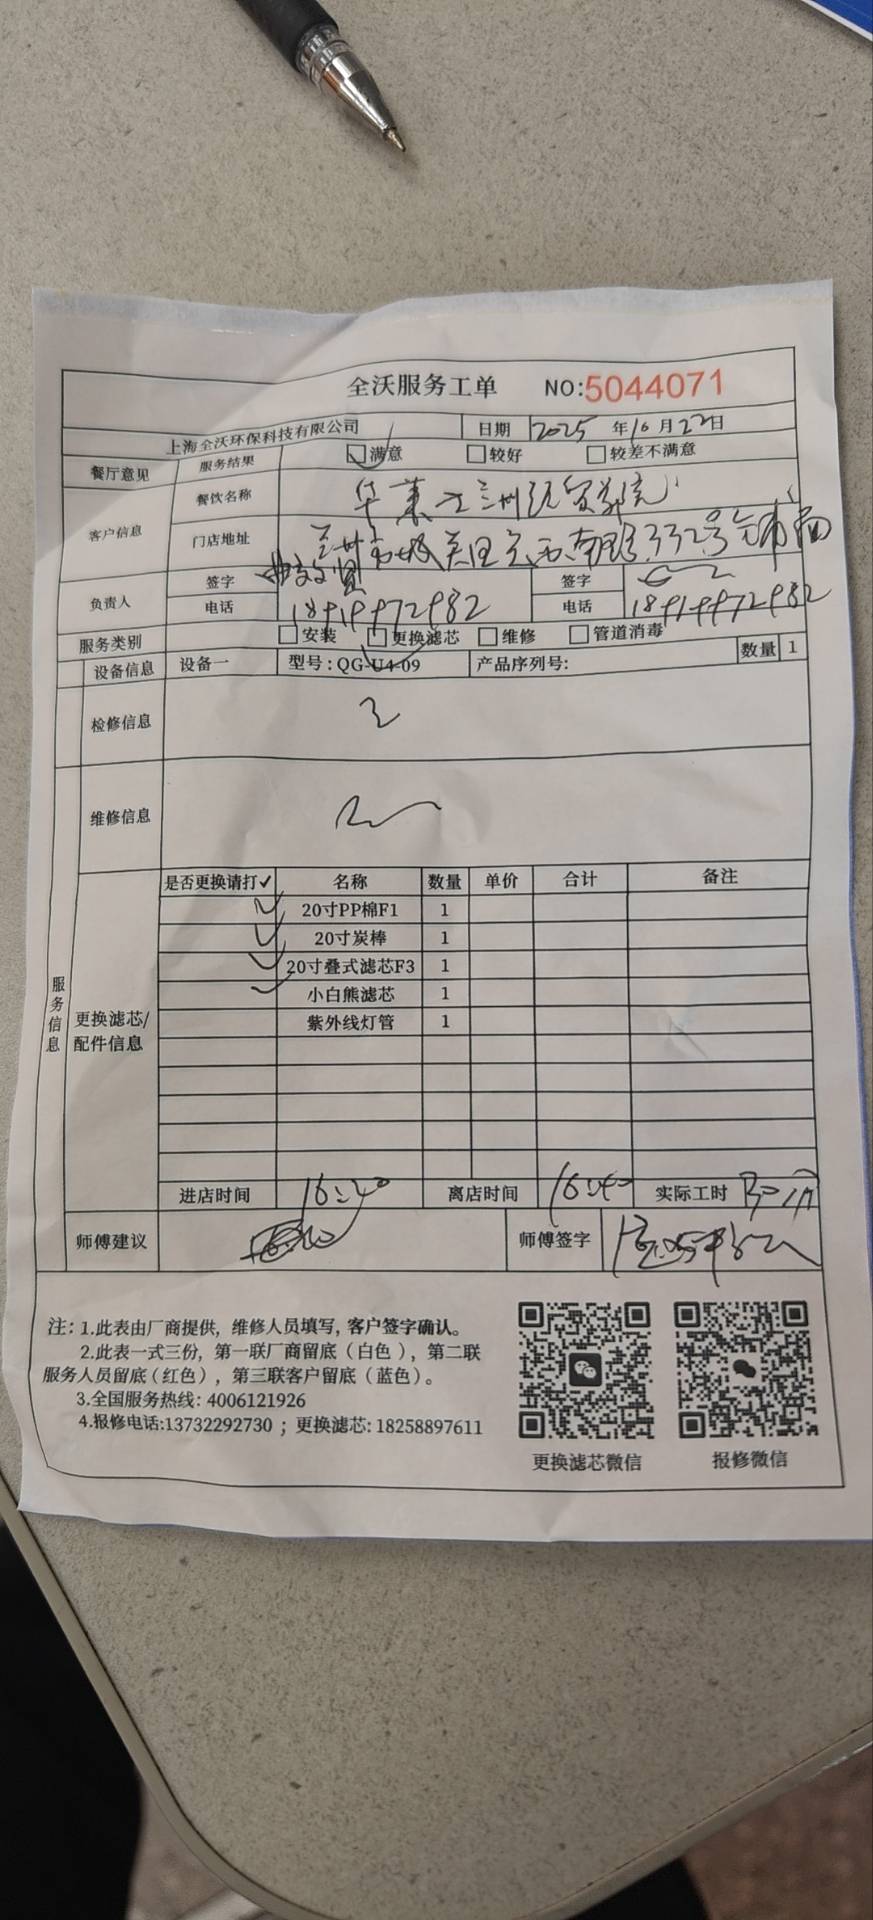 全沃服务工单 NO:5044071
上海全沃环保科技有限公司 日期 2025 年10月22日
餐厅意见 服务结果 满意 较好 较差不满意
客户信息 餐饮名称 华莱士兰州经贸学院
门店地址 兰州市城关区 332号
负责人 签字 签字
电话 18919972982 电话 18919972982
服务类别 安装 更换滤芯 维修 管道消毒
设备信息 设备一 型号:QG-U4-09 产品序列号: 数量 1
检修信息
维修信息
服务信息
更换滤芯/配件信息
是否更换请打✓ 名称 数量 单价 合计 备注
✓ 20寸PP棉F1 1
✓ 20寸炭棒 1
✓ 20寸叠式滤芯F3 1
✓ 小白熊滤芯 1
紫外线灯管 1
进店时间 16:20 离店时间 16:40 实际工时
师傅建议 师傅签字
注: 1.此表由厂商提供, 维修人员填写, 客户签字确认。
2.此表一式三份, 第一联厂商留底(白色), 第二联
服务人员留底(红色), 第三联客户留底(蓝色)。
3.全国服务热线: 4006121926
4.报修电话:13732292730 ; 更换滤芯: 18258897611
更换滤芯微信 报修微信